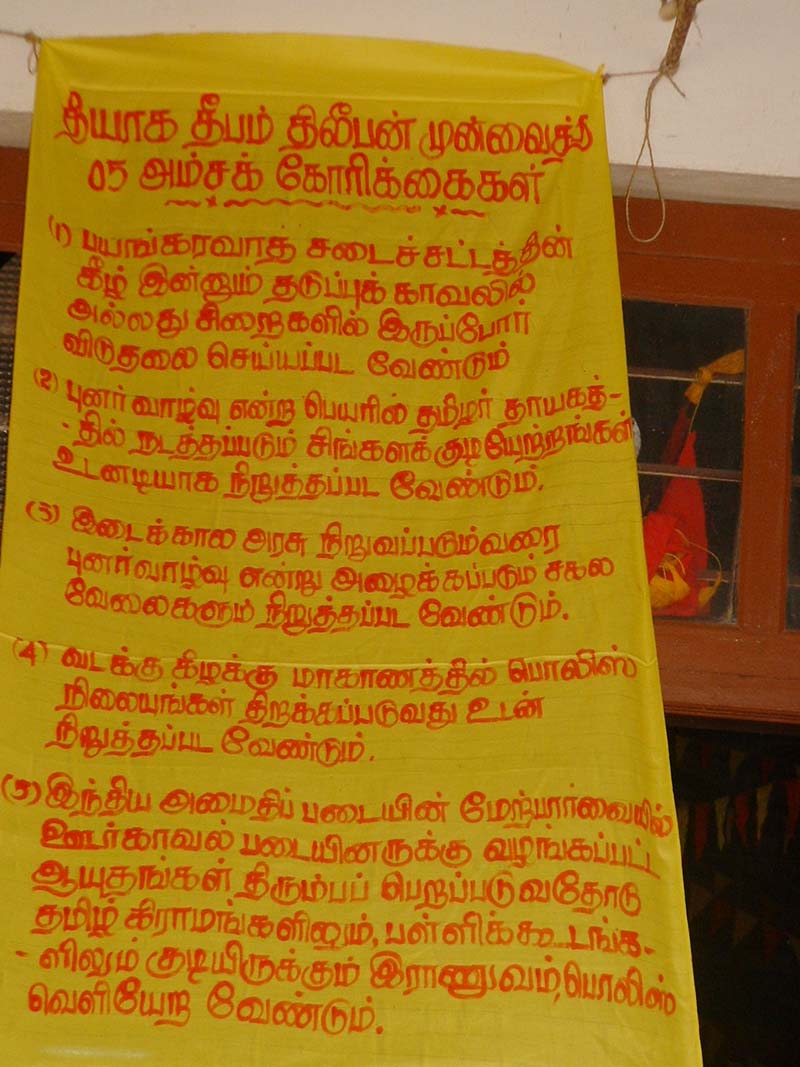 தியாக தீபம் திலீபன் முன்வைத்த
05 அம்சக் கோரிக்கைகள்
(1) பயங்கரவாத் சடைச்சட்டத்தின்
கீழ் இன்னும் தடுப்புக் காவலில்
அல்லது சிறைகளில் இருப்போர்
விடுதலை செய்யப்பட வேண்டும்
(2) புனர்வாழ்வு என்ற பெயரில் தமிழர் தாயகத்-
-தில் நடத்தப்படும் சிங்களக் குடியேற்றங்கள்
உடனடியாக நிறுத்தப்பட வேண்டும்.
(3) இடைக்கால அரசு நிறுவப்படும்வரை
புனர்வாழ்வு என்று அழைக்கப்படும் சகல
வேலைகளும் நிறுத்தப்பட வேண்டும்.
(4) வடக்கு கிழக்கு மாகாணத்தில் பொலிஸ்
நிலையங்கள் திறக்கப்படுவது உடன்
நிறுத்தப்பட வேண்டும்.
(5) இந்திய அமைதிப் படையின் மேற்பார்வையில்
ஊர்காவல் படையினருக்கு வழங்கப்பட்ட
ஆயுதங்கள் திரும்பப் பெறப்படுவதோடு
தமிழ் கிராமங்களிலும், பள்ளிக்கூடங்க-
-ளிலும் குடியிருக்கும் இராணுவம், பொலிஸ்
வெளியேற வேண்டும்.